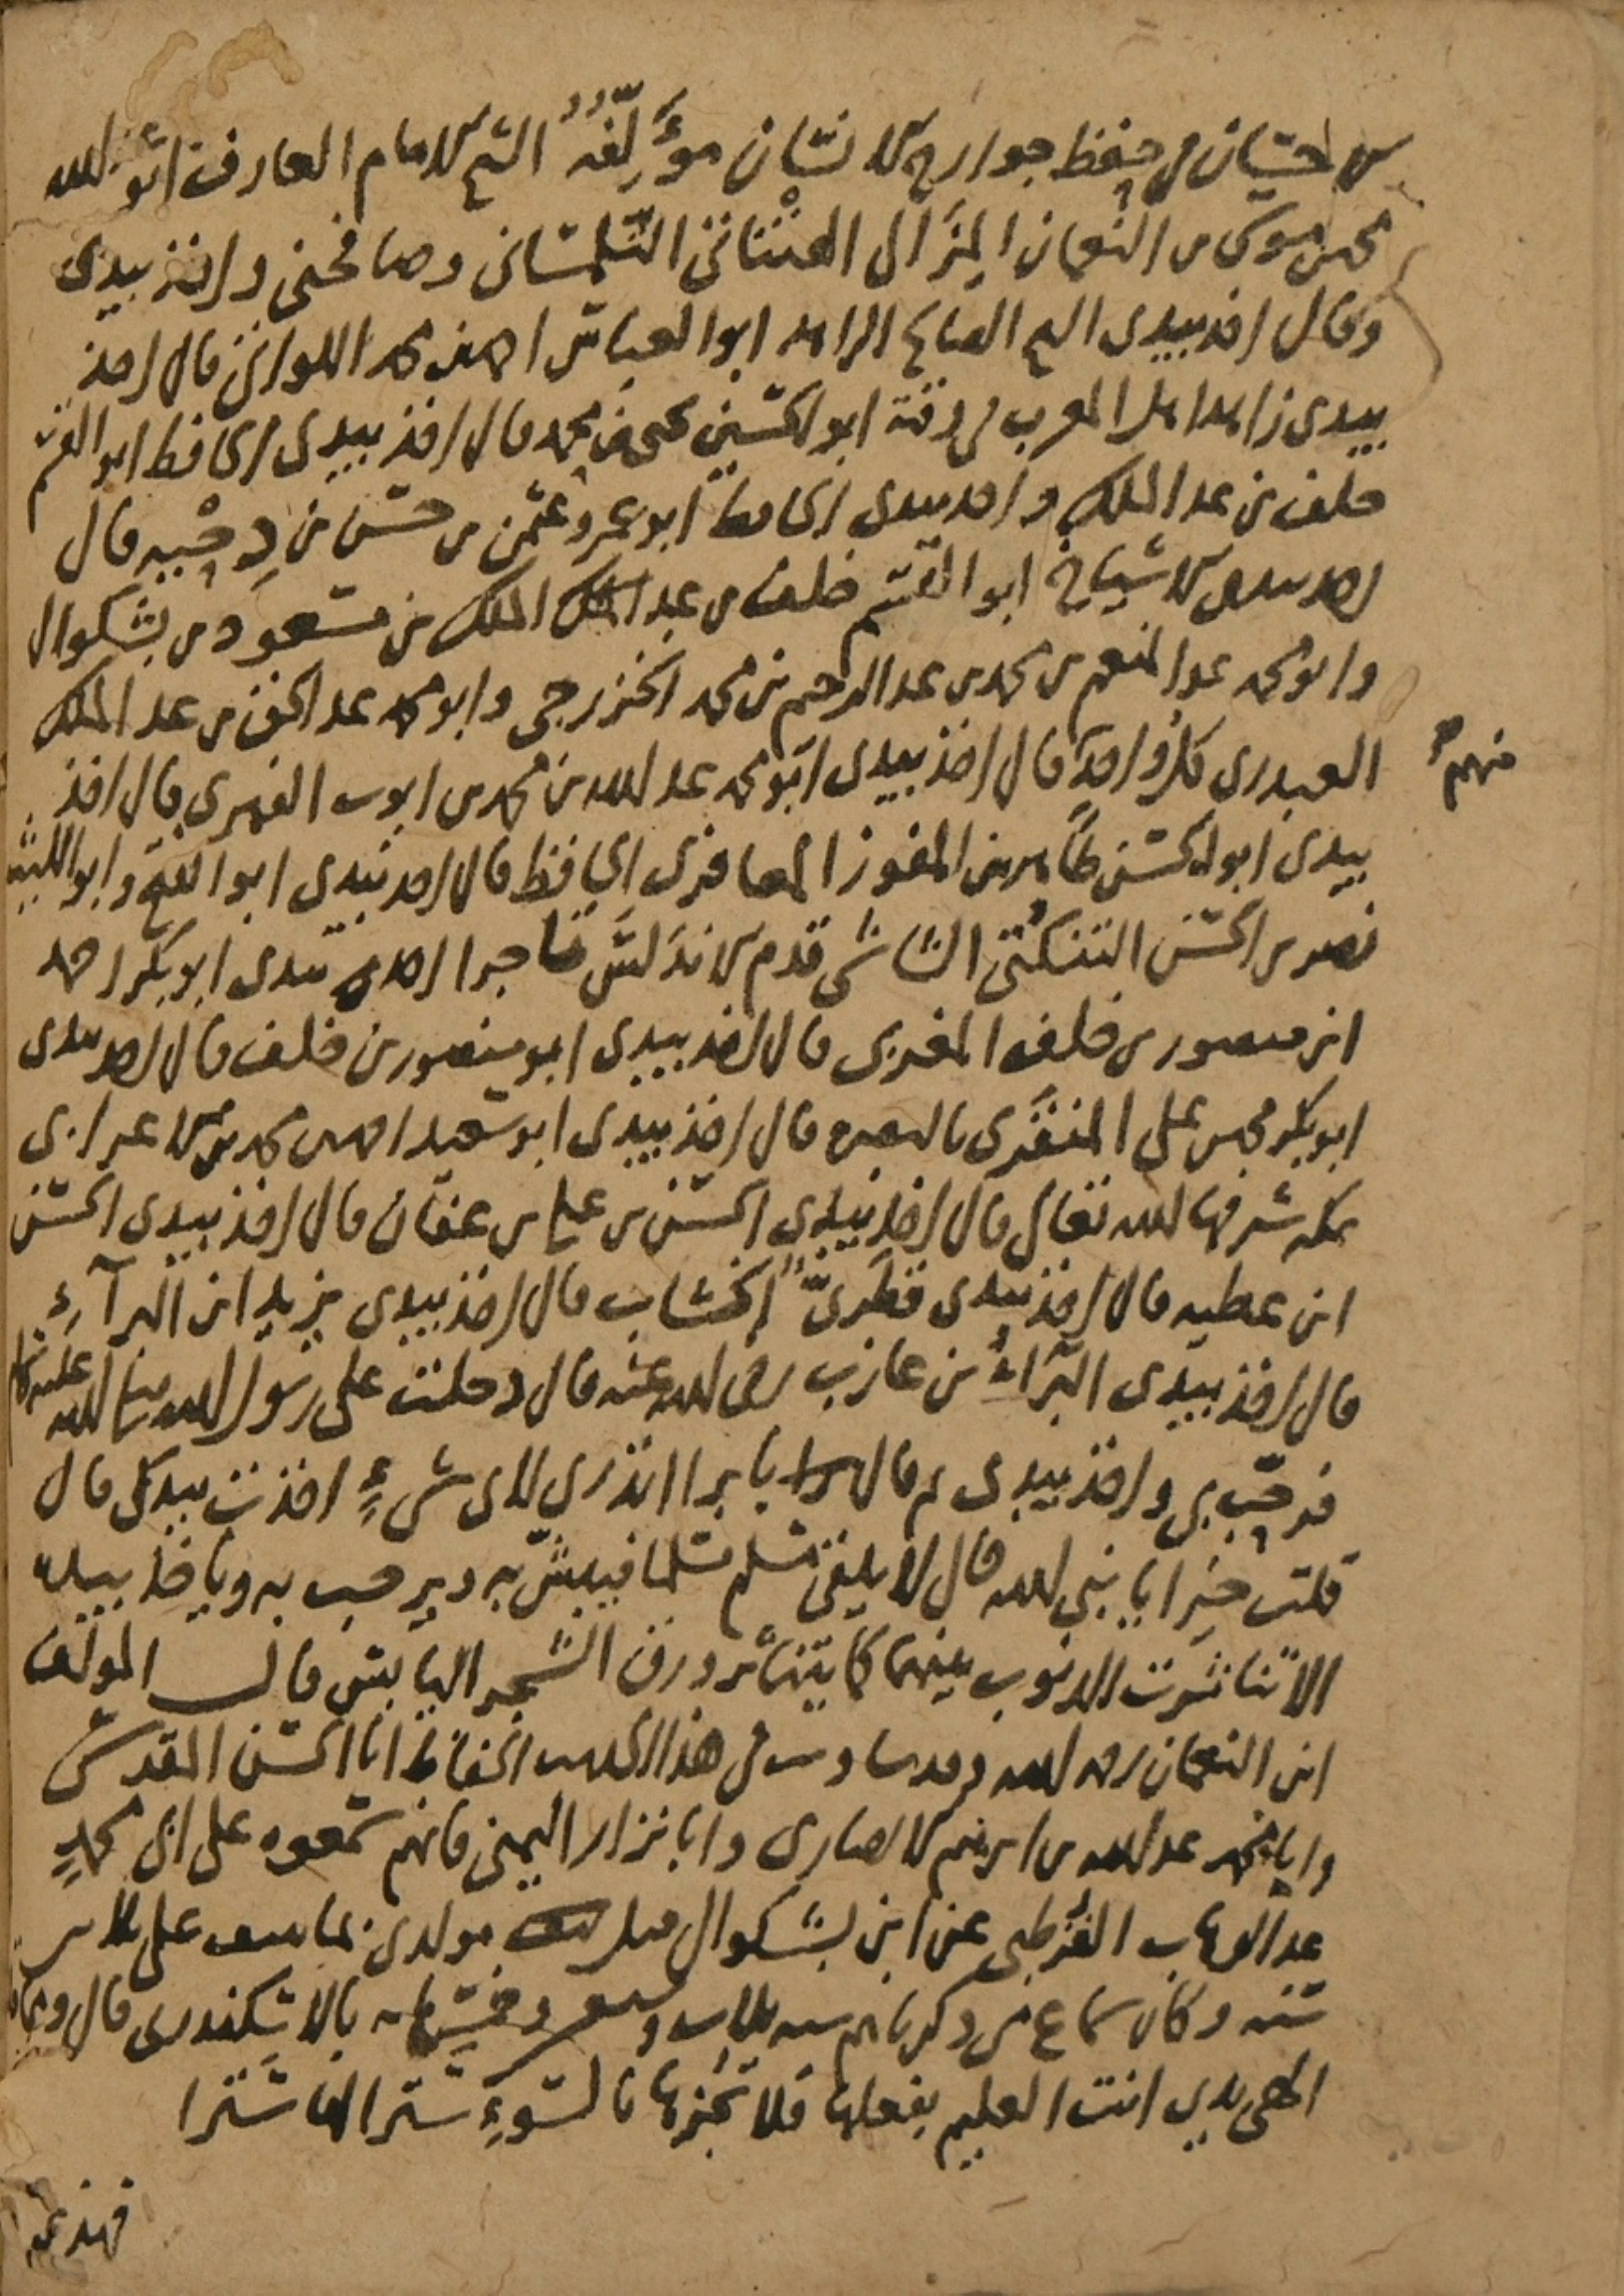 الاحسان في حفظ جوارح الانسان مؤلفه الشيخ الامام العارف ابو عبد الله
محمد بن موسى بن النعمان المزالي الهنتاتي التلمساني وصافحني واخذ بيدي
وقال اخذ بيدي الشيخ الصالح الزاهد ابو العباس احمد بن محمد اللواتي قال اخذ
بيدي زاهد اهل المغرب في وقته ابو الحسين يحيى بن محمد قال اخذ بيدي الحافظ ابو القسم
خلف بن عبد الملك واخذ بيدي الحافظ ابو عمرو عثمن بن حسن بن دحيه قال
اخذ بيدي الاشياخ ابو القسم خلف بن عبد الملك بن مسعود بن بشكوال
وابو محمد عبد المنعم بن محمد بن عبد الرحيم بن محمد الخزرجي وابو محمد عبد الحق بن عبد الملك
العبدري كل واحد قال اخذ بيدي ابو محمد عبد الله بن محمد بن ايوب الفهري قال اخذ
منهم
بيدي ابو الحسن طاهر بن المفوز المعافري الحافظ قال اخذ بيدي ابو الفتح وابو الليث
نصر بن الحسن التنكتي الشاشي قدم الاندلس تاجرا اخذ بيدي ابو بكر احمد
ابن منصور بن خلف المغربي قال اخذ بيدي ابو منصور بن خلف قال اخذ بيدي
ابو بكر محمد بن علي المنقري بالبصرة قال اخذ بيدي ابو سعيد احمد بن محمد بن الاعرابي
بمكه شرفها الله تعالى قال اخذ بيدي الحسن بن علي بن عفان قال اخذ بيدي الحسن
ابن عطيه قال اخذ بيدي قطري الخشاب قال اخذ بيدي يزيد ابن البرآء
قال اخذ بيدي البراء بن عازب رضي الله عنه قال دخلت على رسول الله صلى الله عليه وسلم
فرحب بي واخذ بيدي ثم قال يا برا اتدري لاي شيء اخذت بيدك قال
قلت خيرا يا نبي الله قال لا يلقى مسلم مسلما فيبش به ويرحب به وياخذ بيده
الا تناثرت الذنوب بينهما كما يتناثر ورق الشجر اليابس قال المولف
ابن النعمان رحمه الله وقد ساويت في هذا الحديث الحفاظ ابا الحسن المقدسي
وابا محمد عبد الله بن ابرهيم الانصاري وابا نزار اليمني فانهم سمعوه على ابي محمد
عبد الوهاب القرطبي عن ابن بشكوال قبل مولدي بما ينيف على ثلاثين
سنه وكان سماع من ذكرناهم سنه ثلاث وسبعين وخمسمايه بالاسكندريه قال
الهي يدي انت العليم بفعلها فلا تجزها بالسوء سترا لها سترا
فهذي